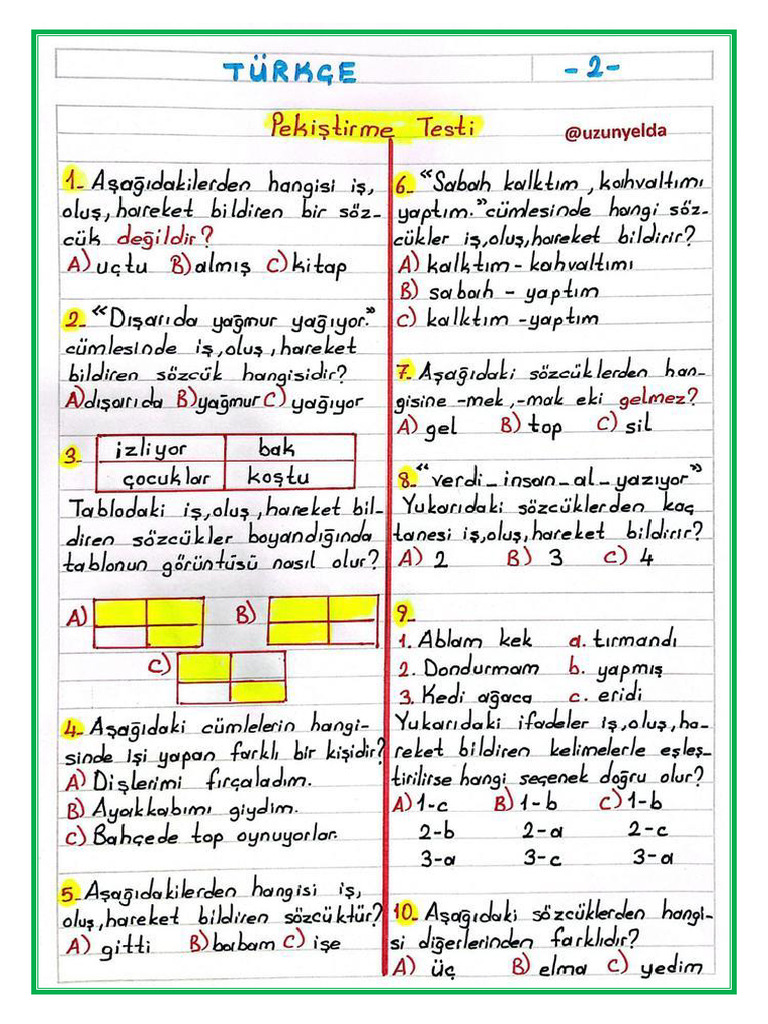 TÜRKÇE
-2-
Pekiştirme Testi
@uzunyelda
1- Aşağıdakilerden hangisi iş,
oluş, hareket bildiren bir söz-
cük değildir?
A) uçtu B) almış C) kitap
2- "Dışarıda yağmur yağıyor."
cümlesinde iş, oluş, hareket
bildiren sözcük hangisidir?
A) dışarıda B) yağmur C) yağıyor
3.
izliyor bak
çocuklar koştu
Tablodaki iş, oluş, hareket bil-
diren sözcükler boyandığında
tablonun görüntüsü nasıl olur?
A) B)
C)
4- Aşağıdaki cümlelerin hangi-
sinde işi yapan farklı bir kişidir?
A) Dişlerimi fırçaladım.
B) Ayakkabımı giydim.
C) Bahçede top oynuyorlar.
5- Aşağıdakilerden hangisi iş,
oluş, hareket bildiren sözcüktür?
A) gitti B) babam C) işe
6- "Sabah kalktım, kahvaltımı
yaptım." cümlesinde hangi söz-
cükler iş, oluş, hareket bildirir?
A) kalktım - kahvaltımı
B) sabah - yaptım
C) kalktım - yaptım
7- Aşağıdaki sözcüklerden han-
gisine -mek, -mak eki gelmez?
A) gel B) top C) sil
8- "verdi - insan - al - yazıyor"
Yukarıdaki sözcüklerden kaç
tanesi iş, oluş, hareket bildirir?
A) 2 B) 3 C) 4
9-
1. Ablam kek a. tırmandı
2. Dondurmam b. yapmış
3. Kedi ağaca c. eridi
Yukarıdaki ifadeler iş, oluş, ha-
reket bildiren kelimelerle eşleş-
tirilirse hangi seçenek doğru olur?
A) 1-c B) 1-b C) 1-b
2-b 2-a 2-c
3-a 3-c 3-a
10- Aşağıdaki sözcüklerden hangi-
si diğerlerinden farklıdır?
A) üç B) elma C) yedim